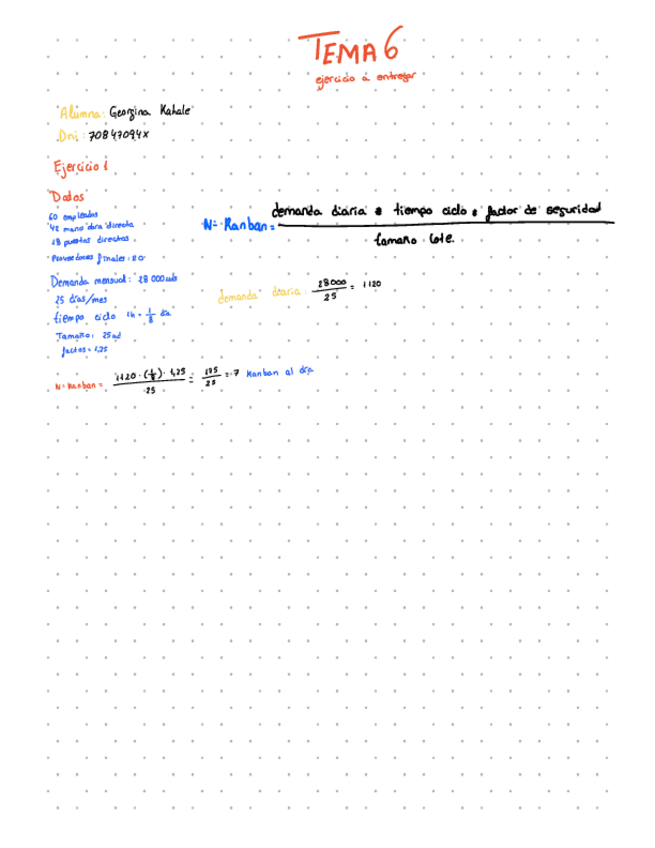 TEMA 6
ejercicio a entregar
Alumna: Georgina Kahale
Dni: 70847094X
Ejercicio 1
Datos
60 empleados
42 mano obra directa
18 puestos directos
Proveedores finales: 20
Demanda mensual: 28 000 uds
25 días/mes
tiempo ciclo 1h = 1/8 día
Tamaño: 25 ud
factos = 1,25
Nº Kanban = demanda diaria * tiempo ciclo * factor de seguridad
tamaño lote.
demanda diaria: 28000/25 = 1120
Nº Kanban = 1120 · (1/8) · 1,25 / 25 = 175/25 = 7 Kanban al día